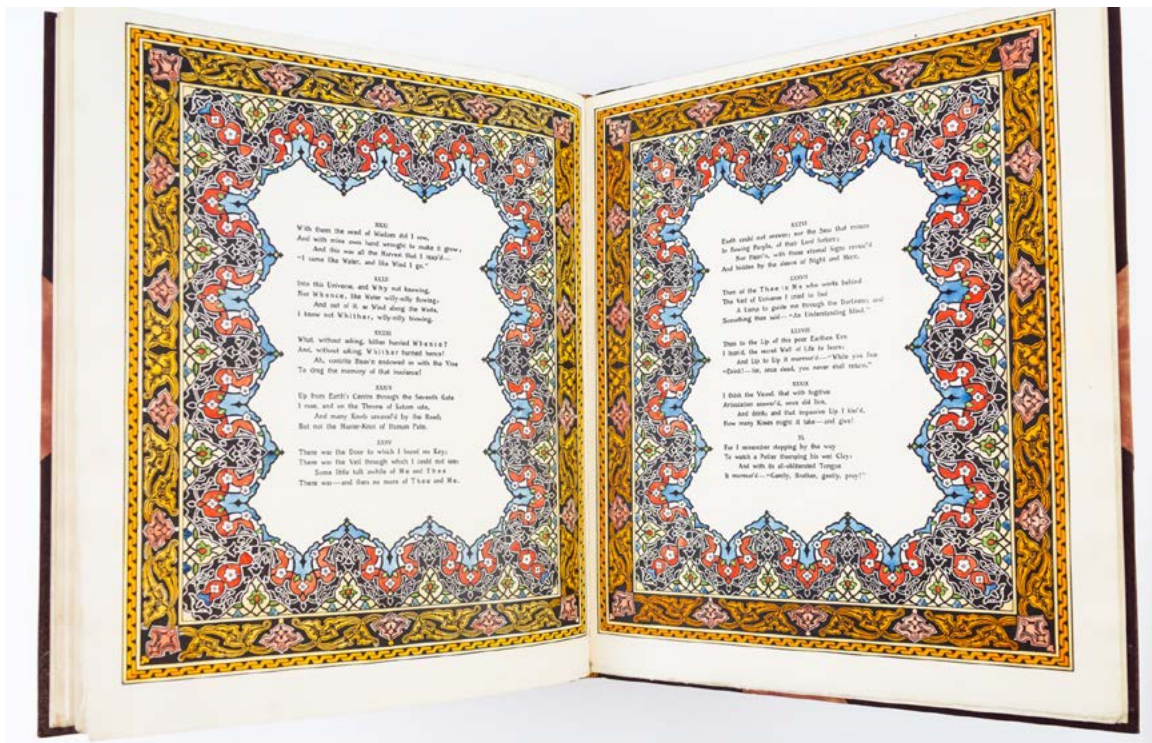 XXXI
With them the seed of Wisdom did I sow,
And with mine own hand wrought to make it grow;
And this was all the Harvest that I reap'd—
"I came like Water, and like Wind I go."
XXXII
Into this Universe, and Why not knowing,
Nor Whence, like Water willy-nilly flowing;
And out of it, as Wind along the Waste,
I know not Whither, willy-nilly blowing.
XXXIII
What, without asking, hither hurried Whence?
And, without asking, Whither hurried hence!
Ah, contrite Heav'n endowed us with the Vine
To drug the memory of that insolence!
XXXIV
Up from Earth's Centre through the Seventh Gate
I rose, and on the Throne of Saturn sate,
And many Knots unravel'd by the Road;
But not the Master-Knot of Human Fate.
XXXV
There was the Door to which I found no Key;
There was the Veil through which I could not see:
Some little talk awhile of Me and Thee
There was—and then no more of Thee and Me.
XXXVI
Earth could not answer; nor the Seas that mourn
In flowing Purple, of their Lord forlorn;
Nor Heav'n, with those eternal Signs reveal'd
And hidden by the sleeve of Night and Morn.
XXXVII
Then of the Thee in Me who works behind
The Veil of Universe I cried to find
A Lamp to guide me through the Darkness; and
Something then said—"An Understanding blind."
XXXVIII
Then to the Lip of this poor Earthen Urn
I lean'd, the secret Well of Life to learn:
And Lip to Lip it murmur'd—"While you live
"Drink!—for, once dead, you never shall return."
XXXIX
I think the Vessel, that with fugitive
Articulation answer'd, once did live,
And drink; and that impassive Lip I kiss'd,
How many Kisses might it take—and give!
XL
For I remember stopping by the way
To watch a Potter thumping his wet Clay:
And with its all-obliterated Tongue
It murmur'd—"Gently, Brother, gently, pray!"